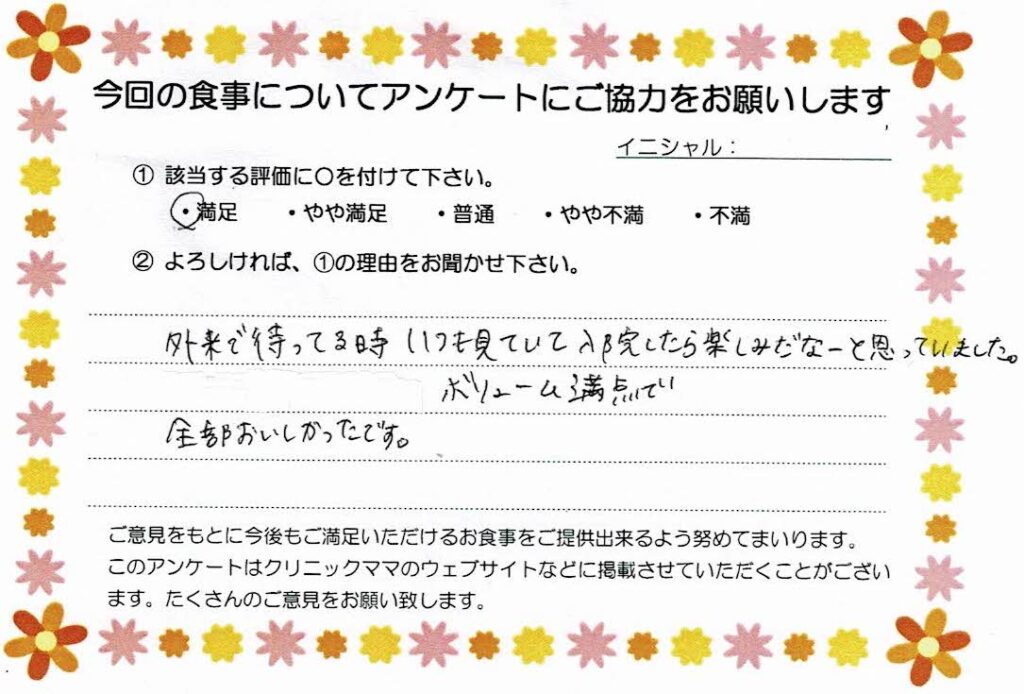 今回の食事についてアンケートにご協力をお願いします
イニシャル：
① 該当する評価に○を付けて下さい。
・満足 ・やや満足 ・普通 ・やや不満 ・不満
② よろしければ、①の理由をお聞かせ下さい。
外来で待ってる時いつも見ていて入院したら楽しみだなーと思っていました。
ボリューム満点で
全部おいしかったです。
ご意見をもとに今後もご満足いただけるお食事をご提供出来るよう努めてまいります。
このアンケートはクリニックママのウェブサイトなどに掲載させていただくことがござい
ます。たくさんのご意見をお願い致します。